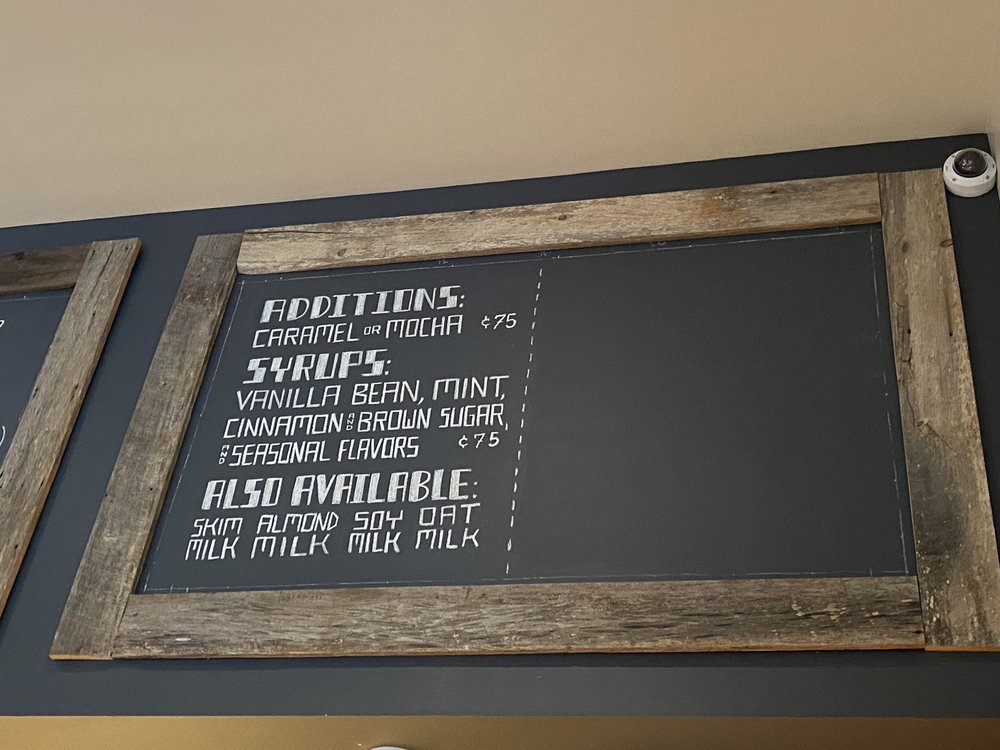 ADDITIONS:
CARAMEL OR MOCHA ¢75
SYRUPS:
VANILLA BEAN, MINT,
CINNAMON AND BROWN SUGAR,
AND SEASONAL FLAVORS ¢75
ALSO AVAILABLE:
SKIM ALMOND SOY OAT
MILK MILK MILK MILK